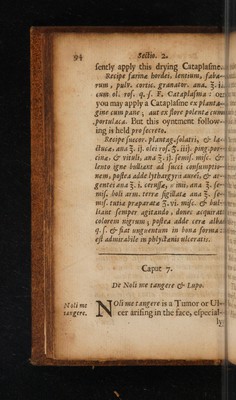 94 Sectio. 2.
sently apply this drying Cataplasme.
Recipe farinæ hordei, lentium, faba-
rum, pulv. cortic. granator. ana. ℥. i.
cum ol. rof. q. ſ. F. Cataplaſma: or
you may apply a Cataplaſme ex planta-
gine cum pane; aut ex flore polentæ cum
portulaca. But this oyntment follow-
ing is held pro ſecreto.
Recipe ſuccor. plantag. ſolatri, & la-
ctucæ, ana ℥. i). olei roſ. ℥. iii). ping. por-
cinæ. & vituli, ana ℥. i). ſemiſ. miſc. &
lento igne bulliant ad ſucci conſumptio-
nem, poſtea adde lythargyrii aurei, & ar-
gentei ana ℥. i. ceruſſæ, mii. ana ℥. ſe-
miſ. boli arm. terræ ſigillatæ ana ℥. ſe-
miſ. tutiæ præparatæ ʒ. vi. miſc. & bul-
liant ſemper agitando, donec acquirat
colorem nigrum; poſtea adde ceræ albæ
q. ſ. & fiat unguentum in bona forma:
eſt admirabile in phlyctænis ulceratis.
Caput 7.
De Noli me tangere & Lupo.
Noli me
tangere.
NOli me tangere is a Tumor or Ul-
cer ariſing in the face, eſpecial-
ly